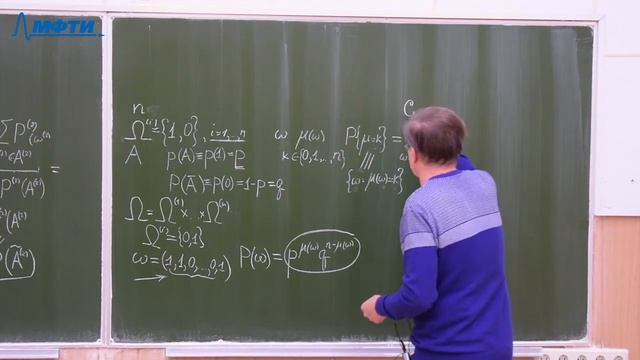 МФТИ
∑ P^{(2)}
ω^{(2)}∈A^{(2)}
P^{(2)}(A^{(2)}) =
n
Ω^{(i)}={1,0}, i=1,...,n
A P(A)≡P(1)≡p
P(Ā)≡P(0)=1-p=q
Ω=Ω^{(1)}×...×Ω^{(n)}
Ω^{(i)}={0,1}
ω=(1,1,0,...,0,1) P(ω)=p^{μ(ω)}q^{n-μ(ω)}
ω μ(ω) P{μ=k}=
k∈{0,1,...,n}
{ω:μ(ω)=k}
C